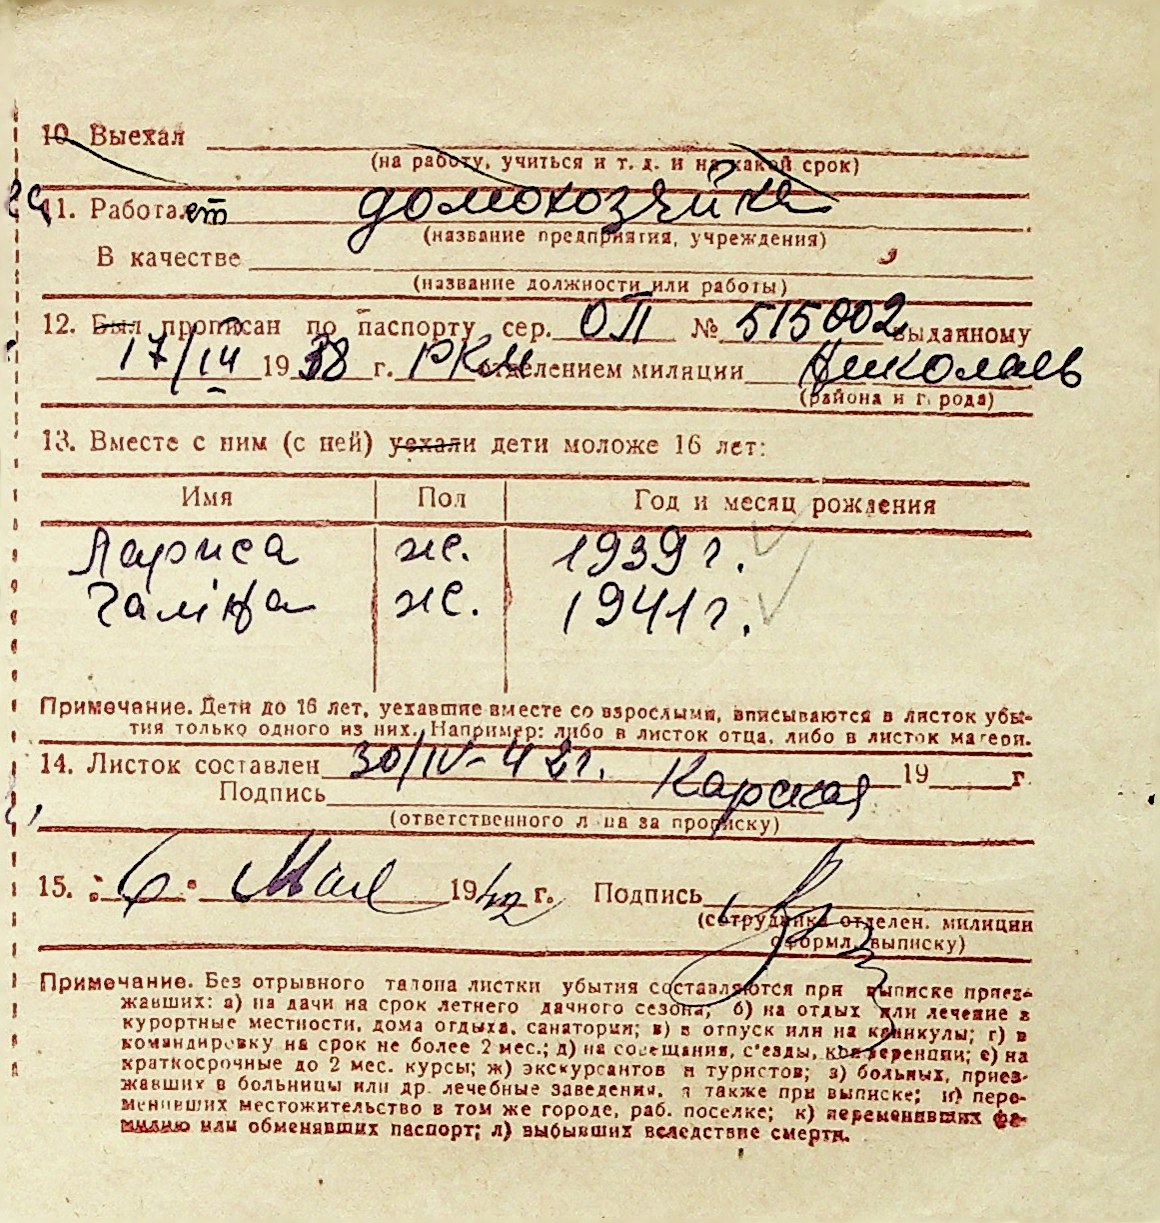 10. Выехал
(на работу, учиться и т. д. и на какой срок)
11. Работает домохозяйка
(название предприятия, учреждения)
В качестве
(название должности или работы)
12. Был прописан по паспорту сер. ОП № 515002 выданному
17/III 1938 г. РКМ отделением милиции Николаев
(района и города)
13. Вместе с ним (с ней) уехали дети моложе 16 лет:
Имя Пол Год и месяц рождения
Лариса ж. 1939 г.
Галіна ж. 1941 г.
Примечание. Дети до 16 лет, уехавшие вместе со взрослыми, вписываются в листок убы-
тия только одного из них. Например: либо в листок отца, либо в листок матери.
14. Листок составлен 30/IV-42г. 19 г.
Подпись Карская
(ответственного лица за прописку)
15. "6" Мая 1942 г. Подпись
(сотрудника отделен. милиции
оформл. выписку)
Примечание. Без отрывного талона листки убытия составляются при выписке приез-
жавших: а) на дачи на срок летнего дачного сезона; б) на отдых или лечение в
курортные местности, дома отдыха, санатории; в) в отпуск или на каникулы; г) в
командировку на срок не более 2 мес.; д) на совещания, с'езды, конференции; е) на
краткосрочные до 2 мес. курсы; ж) экскурсантов и туристов; з) больных, приез-
жавших в больницы или др. лечебные заведения, а также при выписке; и) пере-
менивших местожительство в том же городе, раб. поселке; к) переменивших фа-
милию или обменявших паспорт; л) выбывших вследствие смерти.